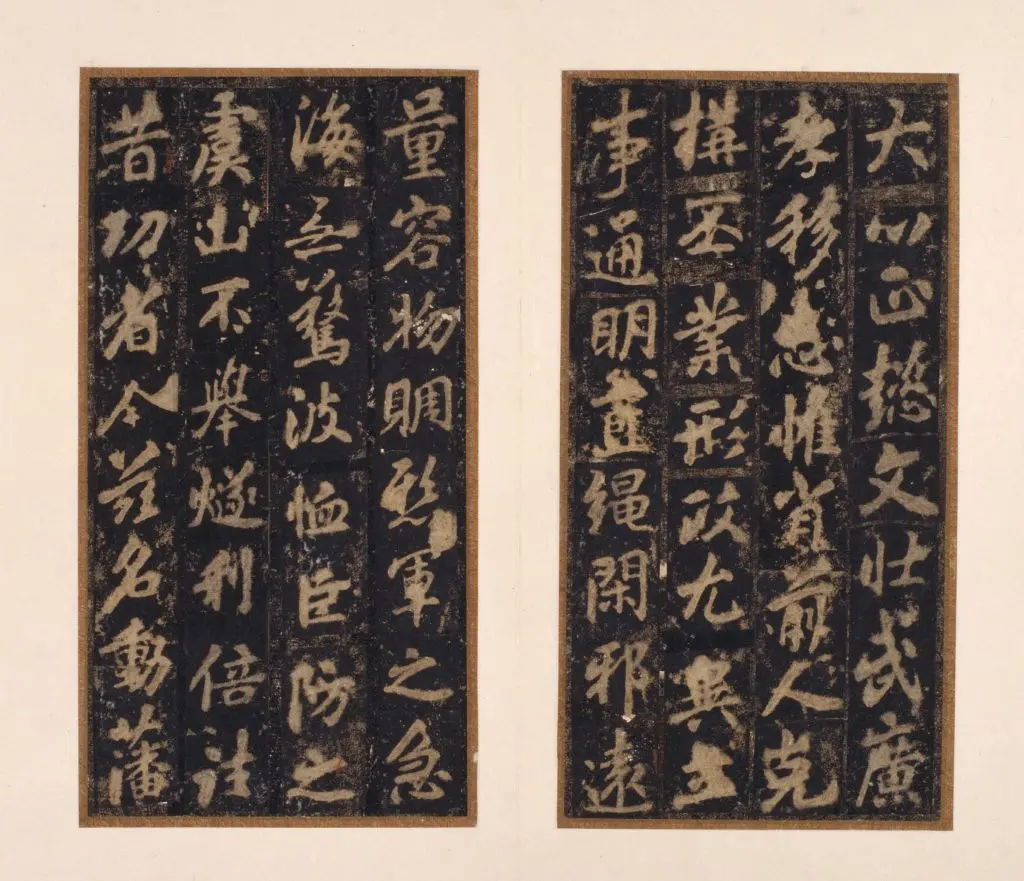 大以正懿文壯武廣
孝移忠惟省前人克
構丕業形政尤異立
事通明直繩閑邪遠
量容物賙軍之急
海無驚波恤臣防之
虞山不舉燧利倍往
昔功省今茲名動藩